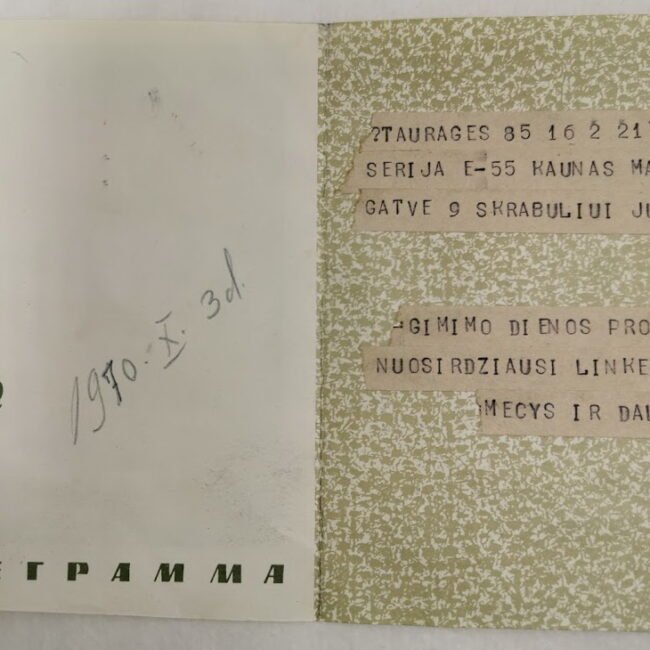 1970. X. 3d.
ГРАММА
?TAURAGES 85 16 2 21
SERIJA E-55 KAUNAS MA
GATVE 9 SKRABULIUI JU
=GIMIMO DIENOS PRO
NUOSIRDZIAUSI LINKE
MECYS IR DA